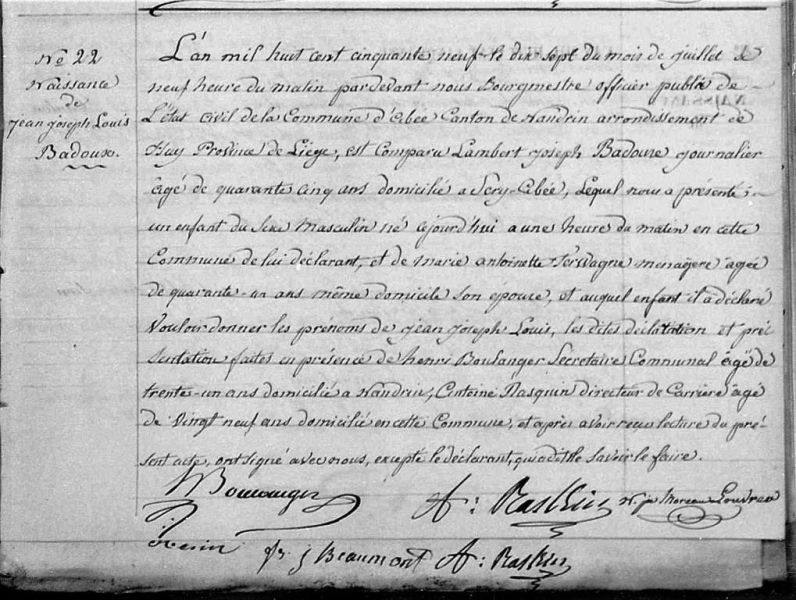 N.º 22
Naissance
de
Jean Joseph Louis
Badoux.
L'an mil huit cent cinquante neuf le dix sept du mois de Juillet à
neuf heure du matin pardevant nous Bourgmestre officier public de
L'état Civil de la Commune d'Ebée Canton de Nandrin arrondissement de
Huy Province de Liége, est Comparu Lambert Joseph Badoux journalier
âgé de quarante cinq ans domicilié a Scry-Abée, Lequel nous a présenté
un enfant du Sexe Masculin né aujourd'hui a une heure du matin en cette
Commune de lui déclarant, et de Marie antoinette Servagne menagère agée
de quarante-un ans même domicile son épouse, et auquel enfant il a déclaré
Vouloir donner les prénoms de Jean Joseph Louis, les dites déclaration et pré-
sentation faites en présence de henri Boulanger Secretaire Communal âgé de
trente-un ans domicilié a Nandrin, Antoine Rasquin directeur de Carrière âgé
de Vingt neuf ans domicilié en cette Commune, et après avoir reçu lecture du pré-
sent acte, ont signé avec nous, excepté le déclarant, qui a dit le savoir le faire.
Boulanger
A: Raskin
Moreau
fr J Beaumont
A: Raskin